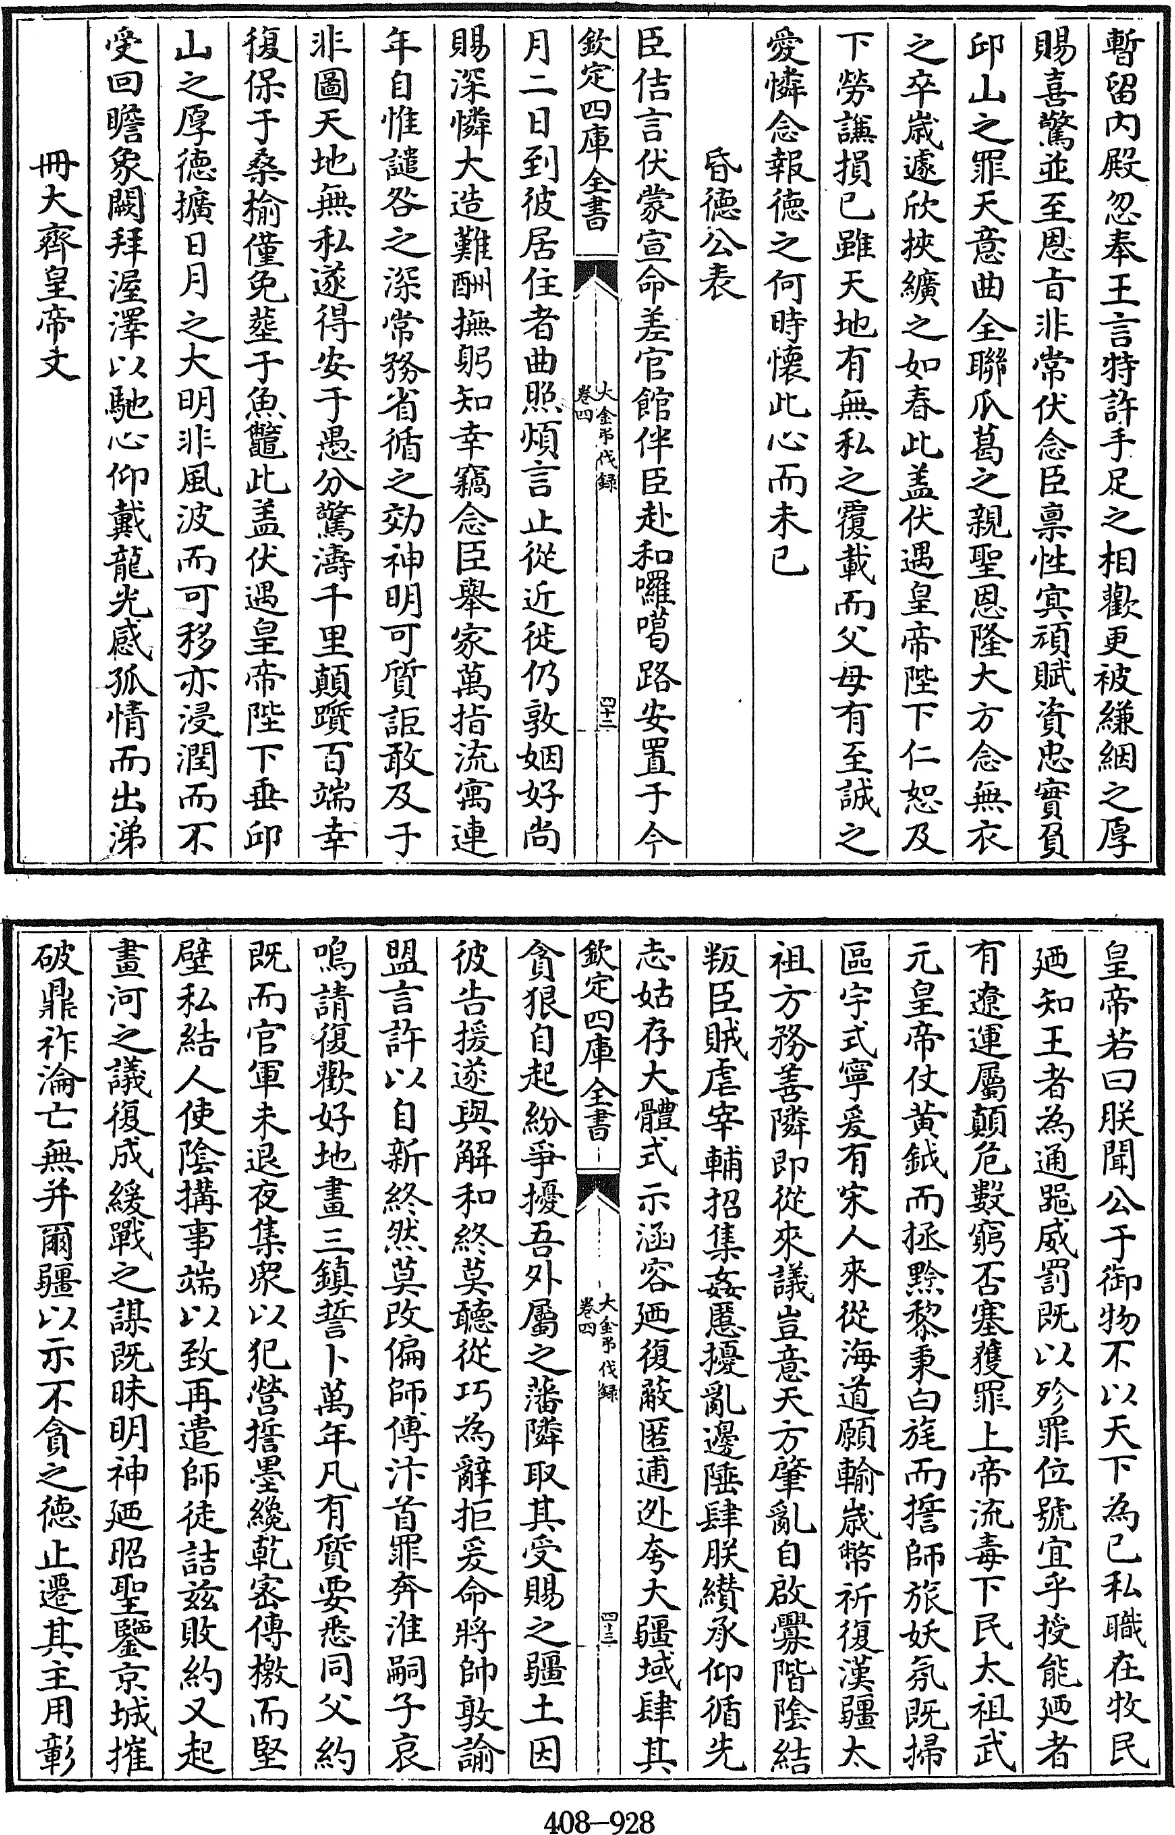 暫留内殿忽奉王言特許手足之相歡更被縑絪之厚
賜喜驚並至恩㫖非常伏念臣禀性寘頑賦資忠實負
邱山之罪天意曲全聯瓜葛之親聖恩隆大方念無衣
之卒歳遽欣挾纊之如春此盖伏遇皇帝陛下仁恕及
下勞謙損已雖天地有無私之覆載而父母有至誠之
愛憐念報徳之何時懷此心而未已
昏徳公表
臣佶言伏蒙宣命差官館伴臣赴和囉噶路安置于今
欽定四庫全書
大金弔伐録
卷四
四十二
月二日到彼居住者曲照煩言止從近徙仍敦姻好尚
賜深憐大造難酬撫躬知幸竊念臣舉家萬指流寓連
年自惟譴咎之深常務省循之効神明可質詎敢及于
非圖天地無私遂得安于愚分驚濤千里顛躓百端幸
復保于桑榆僅免塟于魚鼈此盖伏遇皇帝陛下垂邱
山之厚德擴日月之大明非風波而可移亦浸潤而不
受回瞻象闕拜渥澤以馳心仰戴龍光感孤情而出涕
冊大齊皇帝文
皇帝若曰朕聞公于御物不以天下為已私職在牧民
廼知王者為通器威罰既以殄罪位號宜乎授能廼者
有遼運屬顛危數窮否塞獲罪上帝流毒下民太祖武
元皇帝仗黄鉞而拯黔黎秉白旄而誓師旅妖氛既掃
區宇式寧爰有宋人來從海道願輸歳幣祈復漢疆太
祖方務善隣即從來議豈意天方肇亂自啟釁階陰結
叛臣賊虐宰輔招集姦慝擾亂邊陲肆朕纘承仰循先
志姑存大體式示涵容廼復蔽匿逋逃夸大疆域肆其
欽定四庫全書
大金弔伐録
卷四
四十三
貪狠自起紛爭擾吾外屬之藩隣取其受賜之疆土因
彼告援遂與解和終莫聽從巧為辭拒爰命將帥敦諭
盟言許以自新終然莫改偏師傅汴首罪奔淮嗣子哀
鳴請復歡好地畫三鎮誓卜萬年凡有質要悉同父約
既而官軍未退夜集衆以犯營誓墨纔乾密傳檄而堅
壁私結人使陰搆事端以致再遣師徒詰兹敗約又起
畫河之議復成緩戰之謀既昧明神廼昭聖鑒京城摧
破鼎祚淪亡無并爾疆以示不貪之徳止遷其主用彰
408-928